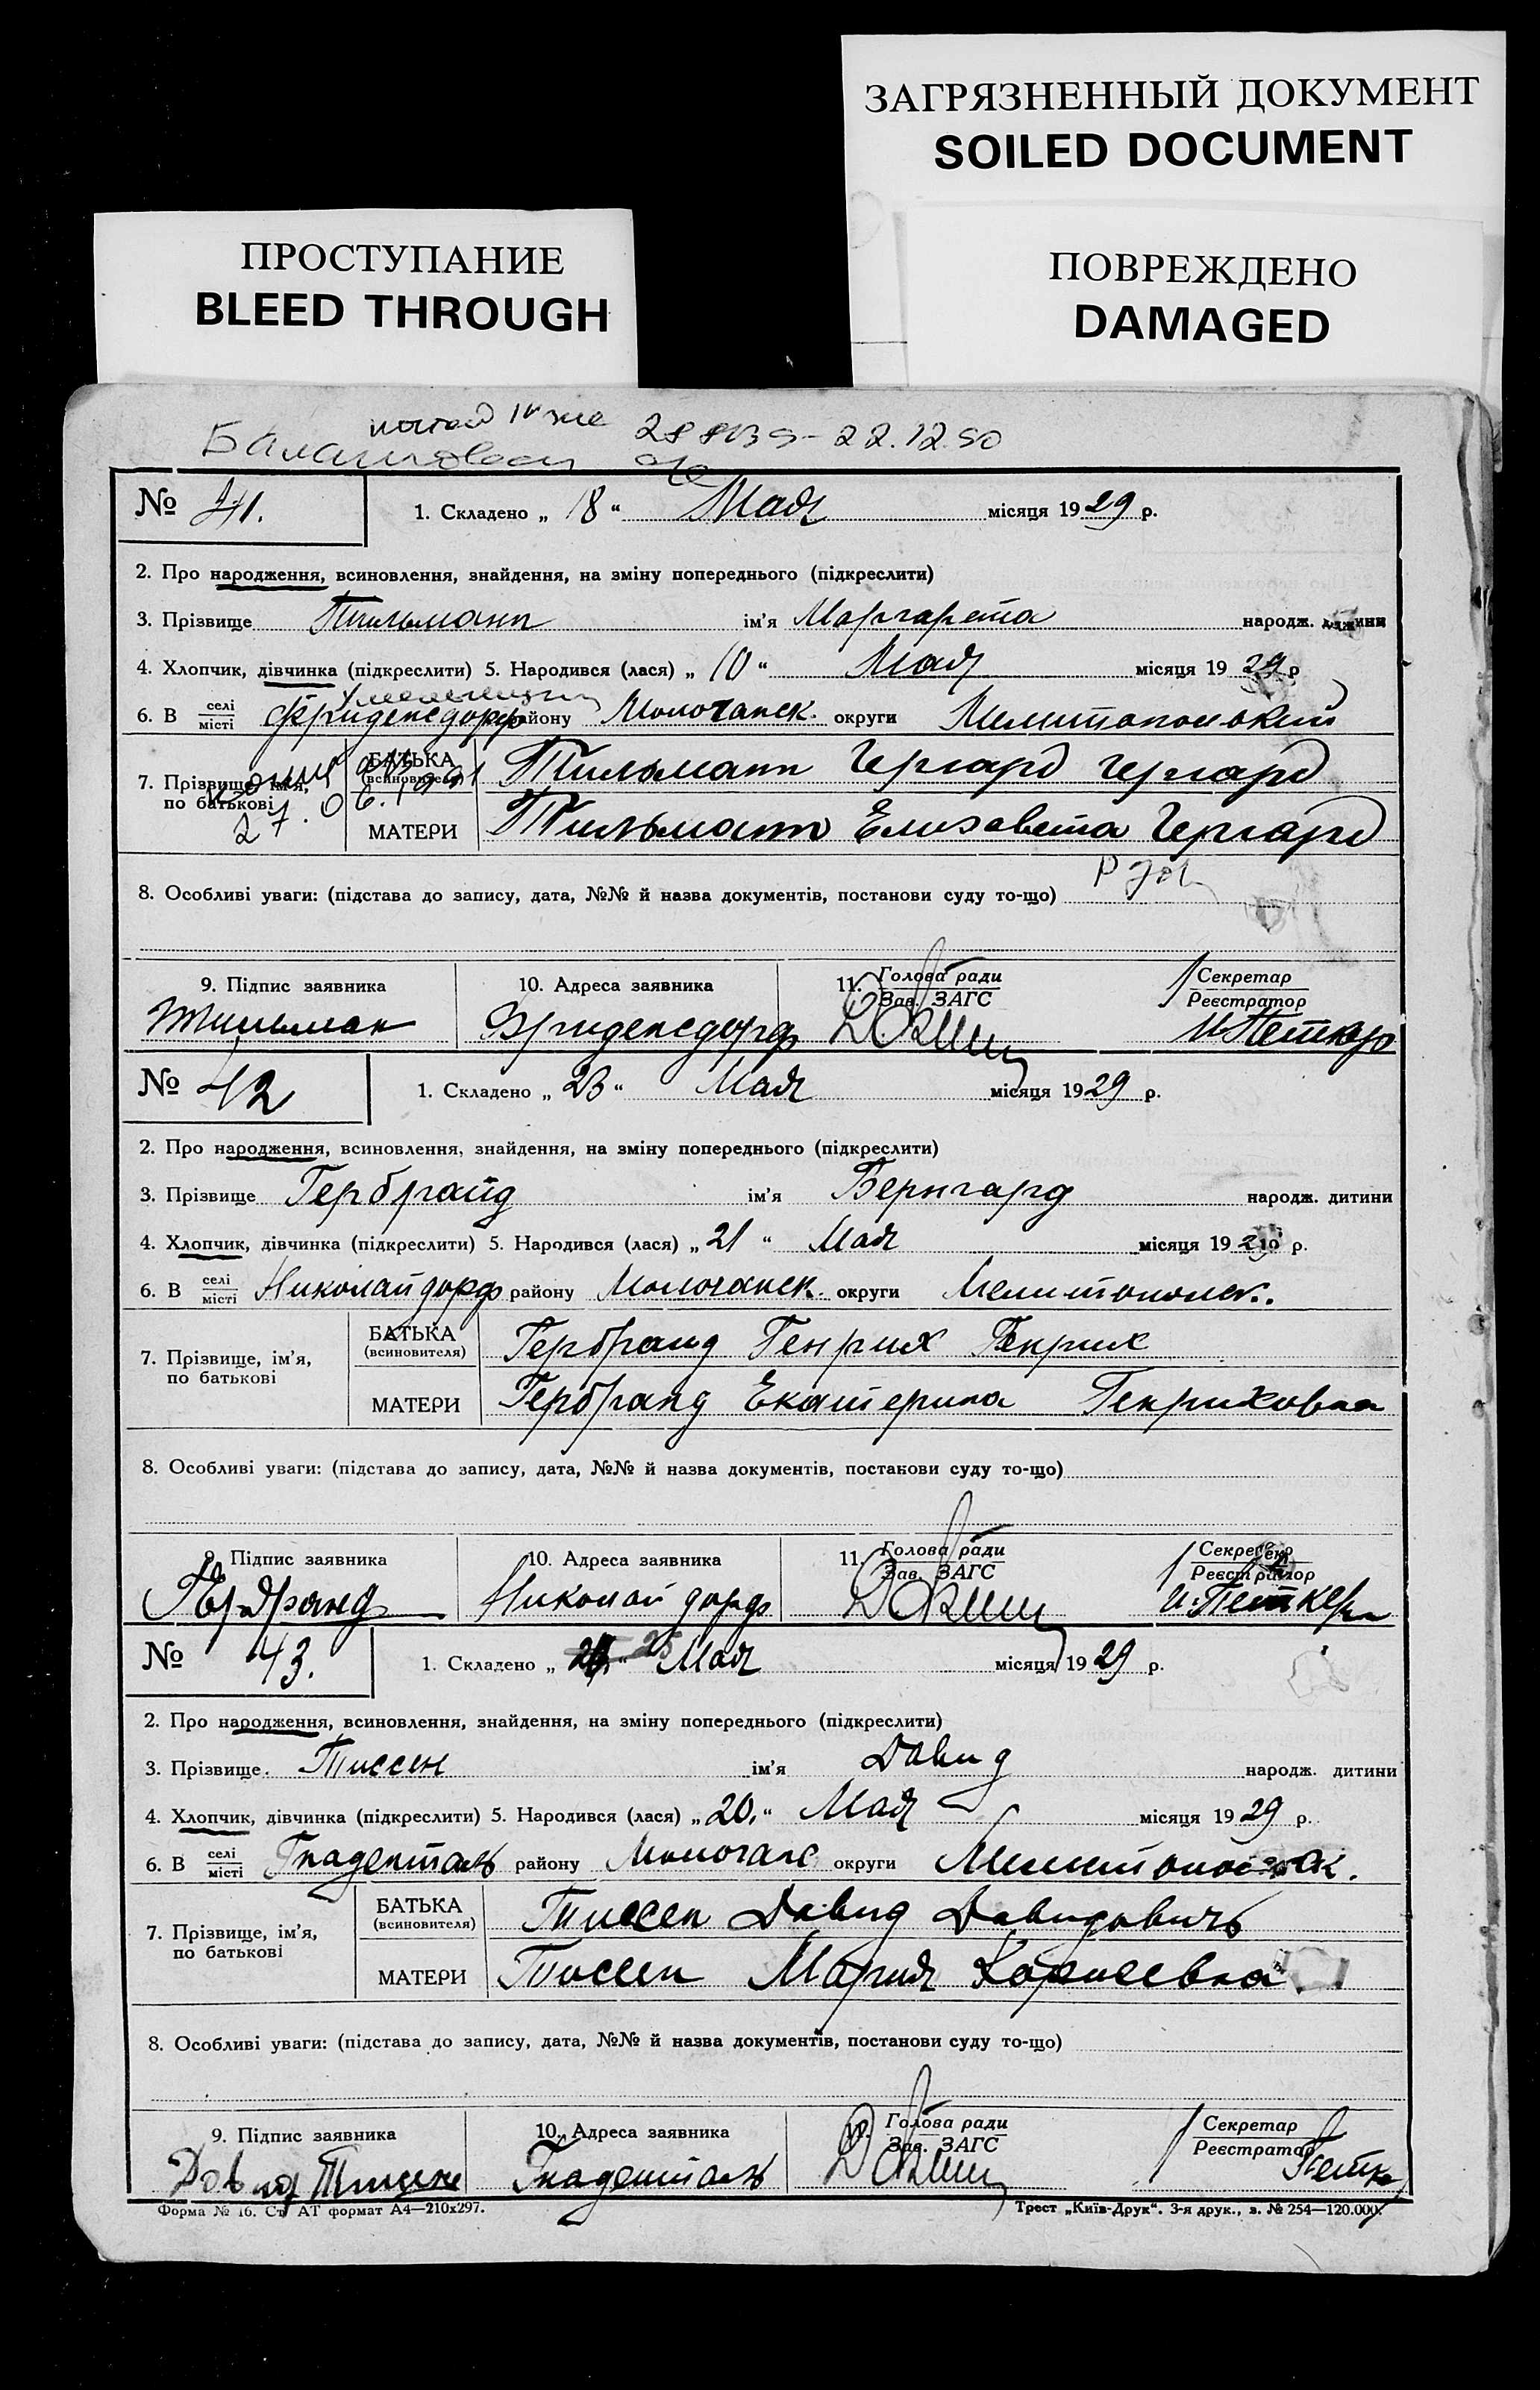 ЗАГРЯЗНЕННЫЙ ДОКУМЕНТ
SOILED DOCUMENT
ПРОСТУПАНИЕ
BLEED THROUGH
ПОВРЕЖДЕНО
DAMAGED
22.12.50
№ 41. 1. Складено „ 18 “ Мая місяця 1929 р.
2. Про народження, всиновлення, знайдення, на зміну попереднього (підкреслити)
3. Прізвище Тильманн ім'я Маргарета народж. дитини
4. Хлопчик, дівчинка (підкреслити) 5. Народився (лася) „ 10 “ Мая місяця 19 29 р
6. В селі місті Фриденсдорф району Молочанск. округи Мелитопольский
7. Прізвище, ім'я, по батькові БАТЬКА (всиновителя) Тильманн Гергард Гергард
МАТЕРИ Тильманн Елизавета Гергард
8. Особливі уваги: (підстава до запису, дата, №№ й назва документів, постанови суду то-що)
9. Підпис заявника 10. Адреса заявника 11. Голова ради Зав. ЗАГС Секретар Реєстратор
Тильман Фриденсдорф И Петкер
№ 42 1. Складено „ 23 “ Мая місяця 1929 р.
2. Про народження, всиновлення, знайдення, на зміну попереднього (підкреслити)
3. Прізвище Гербранд ім'я Бернгард народж. дитини
4. Хлопчик, дівчинка (підкреслити) 5. Народився (лася) „ 21 “ Мая місяця 19 29 р.
6. В селі місті Николайдорф району Молочанск. округи Мелитопольск.
7. Прізвище, ім'я, по батькові БАТЬКА (всиновителя) Гербранд Генрих Генрих
МАТЕРИ Гербранд Екатерина Генриховна
8. Особливі уваги: (підстава до запису, дата, №№ й назва документів, постанови суду то-що)
9. Підпис заявника 10. Адреса заявника 11. Голова ради Зав. ЗАГС Секретар Реєстратор
Гербранд Николай дорф И. Петкер
№ 43. 1. Складено „ 25 “ Мая місяця 19 29 р.
2. Про народження, всиновлення, знайдення, на зміну попереднього (підкреслити)
3. Прізвище. Тиссен ім'я Давид народж. дитини
4. Хлопчик, дівчинка (підкреслити) 5. Народився (лася) „ 20. “ Мая місяця 19 29 р.
6. В селі місті Гнаденталь району Молочанс округи Мелитопольск.
7. Прізвище, ім'я, по батькові БАТЬКА (всиновителя) Тиссен Давид Давидовичь
МАТЕРИ Тиссен Мария Корнеевна
8. Особливі уваги: (підстава до запису, дата, №№ й назва документів, постанови суду то-що)
9. Підпис заявника 10. Адреса заявника 11. Голова ради Зав. ЗАГС Секретар Реєстратор
Давид Тиссен Гнаденталь Петк
Форма № 16. Ст. АТ формат А4—210х297. Трест „Київ-Друк“. 3-я друк., з. № 254—120.000.